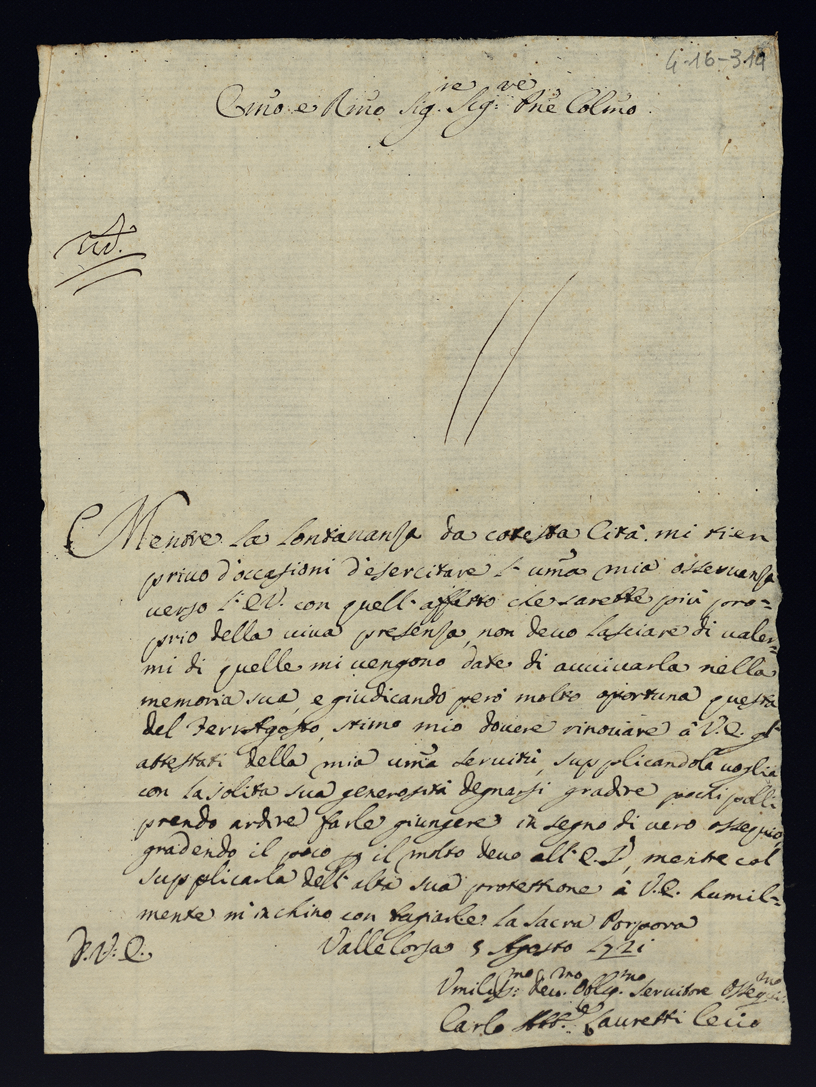 4-16-314
Emo e Rmo Sig.re Sig.re Pne Colmo
Mentre la lontananza da cotesta Città mi tien
privo d'occasioni d'esercitare l'uma mia osservanza
verso l'E.V. con quell'affetto che sarebbe più pro=
prio della viva presenza, non devo lasciare di valer=
mi di quelle mi vengono date di avvivarla nella
memoria sua, e giudicando però molto oportuna questa
del FerrAgosto, stimo mio dovere rinovare à V.E. gl'
attestati della mia uma servitù, supplicandola voglia
con la solita sua generosità degnarsi gradire pochi polli
prendo ardire farle giungere in segno di vero ossequio,
gradendo il poco p il molto devo all'E.V., mentre col
supplicarla dell'alta sua protettione à V.E. humil=
mente m'inchino con baciarle la Sacra Porpora
D.V.E. Vallecorsa 5 Agosto 1721
Umiliss.mo Dev.mo Oblig.mo Servitore Osseq.mo
Carlo Lauretti